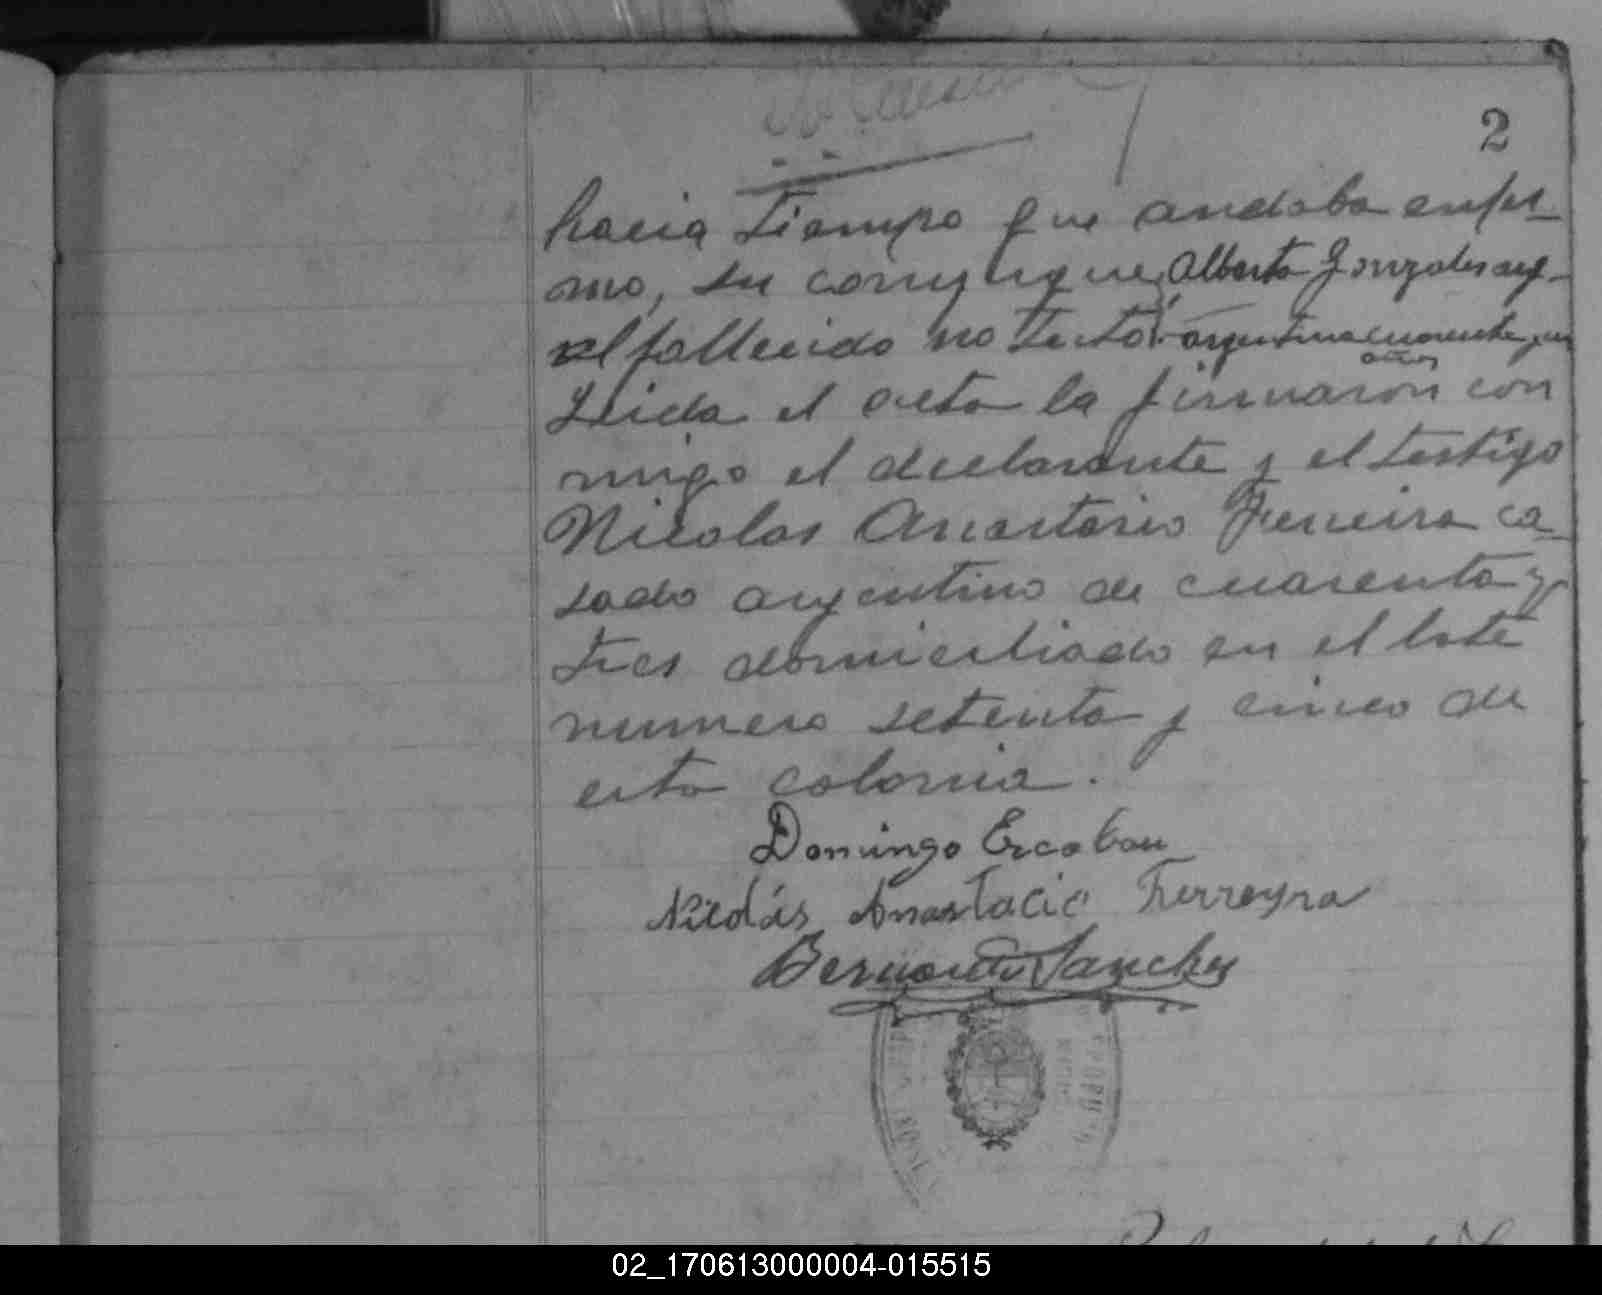 2
hacia tiempo que andaba enfer-
mo, su conyugue, Alberta Gonzales arg-
el fallecido no testó. argentina cuarenta
años
Leida el acta la firmaron con
migo el declarante y el testigo
Nicolas Anastasio Ferreira ca-
sado argentino de cuarenta y
tres domiciliado en el lote
numero setenta y cinco de
esta colonia.
Domingo Escobar
Nicolás Anastacio Ferreyra
Sanchez
02_170613000004-015515